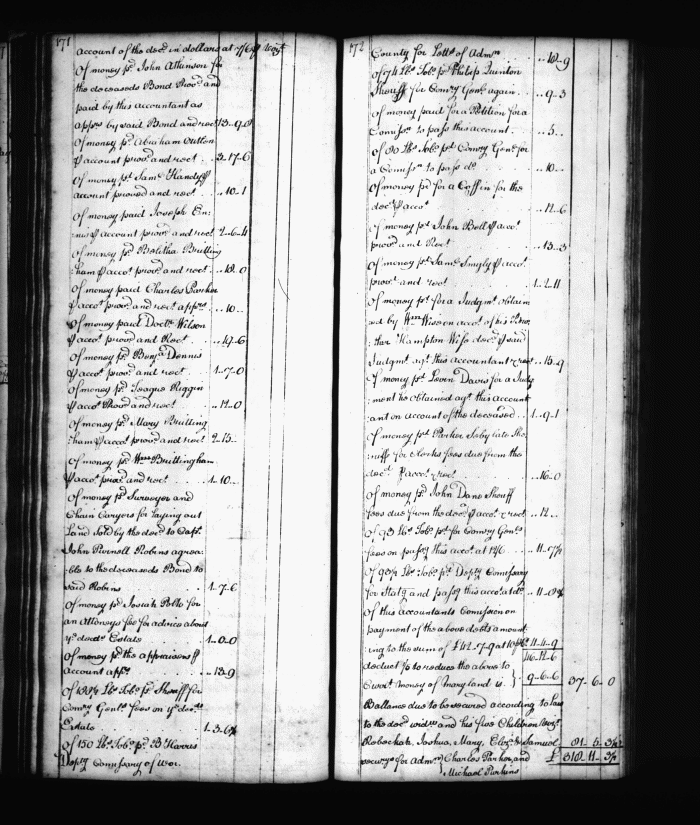 171
account of the decd in dollars at 7/6 p
Of money pd John Atkinson for
the deceaseds Bond Provd and
paid by this accountant as
apprs by said Bond and rect 13..9..
Of money pd Abraham Outten
P account provd and rect .. 3..17..6
Of money pd Saml Handy P
account proved and rect .. ..10..1
Of money paid Joseph En:
nis P account provd and rect 2..6..4
Of money pd Belitha Britting
ham P acct provd and rect .. ..18..0
Of money paid Charles Parker
P acct provd and rect apprs .. ..10..
Of money paid Doctr Wilson
P acct provd and Rect .. ..17..6
Of money pd Benja Dennis
P acct provd and rect .. 1..7..0
Of money pd Teague Riggin
P acct Provd and rect .. ..12..0
Of money pd Mary Britting
ham P acct provd and rect 2..15..
Of money pd Wm Brittingham
P acct provd and rect .. 1..10..
Of money pd Surveyor and
Chain Caryers for laying out
Land sold by the decd to Capt
John Purnell Robins agrea:
ble to the deceaseds Bond to
said Robins .. 1..7..6
Of money pd Josiah Polk for
an Attorneys fee for advice about
ye decds Estate .. 1..0..0
Of money pd the appraisors P
Account apprs .. ..13..9
lbs Tobo pd Sheriff for
Comry Genls fees on ye decds
Estate .. 1..3..6
Of 150 lbs Tobo pd B Harris
Depty Comissary of Wor.
172
County for Lettrs of Admn .. ..18..9
Of 74 lbs Tobo pd Philip Quinton
Sheriff for Comry Genl again .. ..9..3
Of money paid for a Petition for a
Comissn to pass this account .. ..5..
Of 80 lbs Tobo pd Comry Genl for
a Comissn to pass do .. ..10..
Of money pd for a Coffin for the
decd P acct .. ..12..6
Of money pd John Bell P acct
provd and Rect .. ..15..3
Of money pd Saml Smyly P acct
provd and rect .. 1..2..11
Of money pd for a Judgmt obtain
ed by Wm Wise on acct of his Fa
ther Hampton Wise decd P said
Judgmt agt this accountant & rect .. 15..9
Of money pd Levin Davis for a Judg
ment he obtained agt this Account
ant on account of the deceased .. 1..9..1
Of money pd Parker Selby late She
riff for Clerks fees due from the
decd P acct & rect .. ..16..0
Of money pd John Dane Sheriff
fees due from the decd P acct & rect .. 12..
Of 93 lbs Tobo pd for Comry Genls
fees on passg this acct at 12/6 .. ..11..7½
lbs Tobo pd Depty Comissary
for Statg and passg this acct at do .. 11..
Of this Accountants Comission on
payment of the above debts amount
ing to the sum of £42..7..9 at 10 P Ct 4..4..9
46..12..6
deduct to reduce the above to
Currt money of Maryland is } 9..6..6 37..6..0
Ballance due to be secured according to Law
to the decd widow and his five Children
Joshua, Mary, Eliz & Samuel .. 81..5..3½
securys for Admn } Charles Parker and £ 318..11..
Michael Perkins